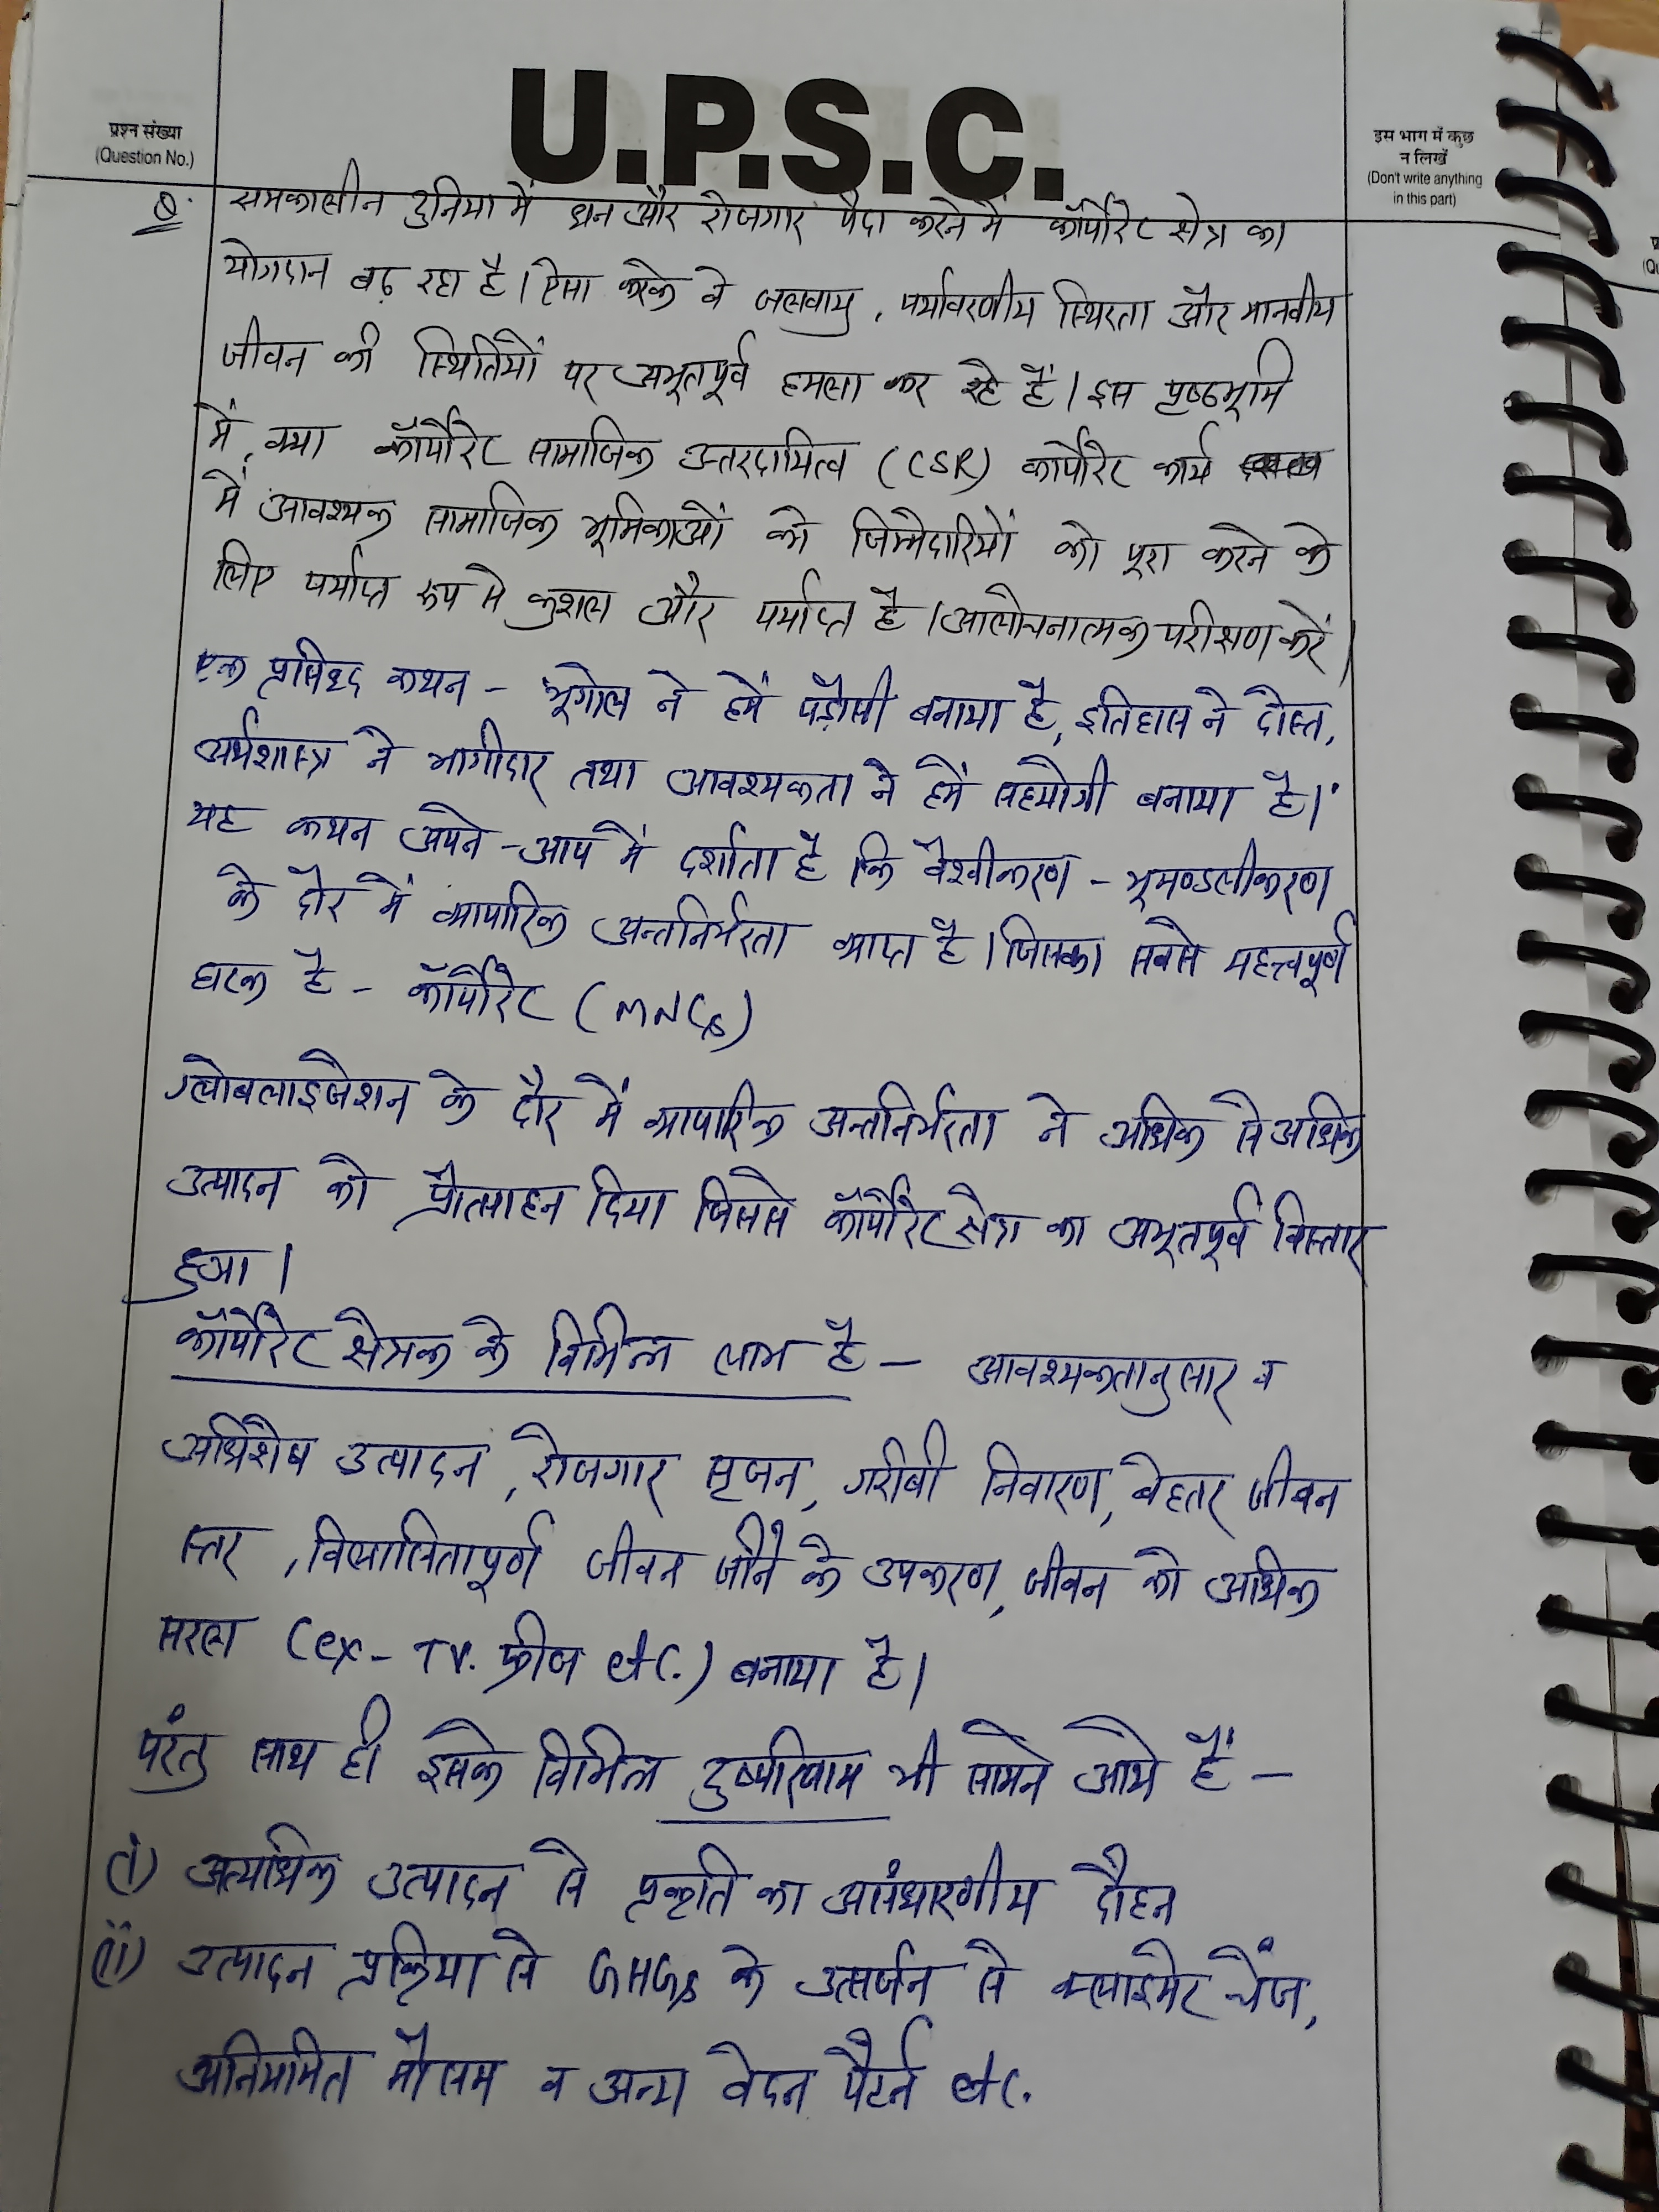 U.P.S.C.
प्रश्न संख्या
(Question No.)
इस भाग में कुछ
न लिखें
(Don't write anything
in this part)
Q. समकालीन दुनिया में धन और रोजगार पैदा करने में कॉर्पोरेट क्षेत्र का
योगदान बढ़ रहा है। ऐसा करके वे जलवायु, पर्यावरणीय स्थिरता और मानवीय
जीवन की स्थितियों पर अभूतपूर्व हमला कर रहे हैं। इस पृष्ठभूमि
में, क्या कॉर्पोरेट सामाजिक उत्तरदायित्व (CSR) कार्पोरेट कार्य
में आवश्यक सामाजिक भूमिकाओं को जिम्मेदारियों को पूरा करने के
लिए पर्याप्त रूप से कुशल और पर्याप्त है। आलोचनात्मक परीक्षण करें।
एक प्रसिध्द कथन - भूगोल ने हमें पड़ौसी बनाया है, इतिहास ने दोस्त,
अर्थशास्त्र ने भागीदार तथा आवश्यकता ने हमें सहयोगी बनाया है।'
यह कथन अपने-आप में दर्शाता है कि वैश्वीकरण - भूमण्डलीकरण
के दौर में व्यापारिक अन्तनिर्भरता व्याप्त है। जिसका सबसे महत्त्वपूर्ण
घटक है - कॉर्पोरेट (MNCs)
ग्लोबलाइजेशन के दौर में व्यापारिक अन्तनिर्भरता ने अधिक से अधिक
उत्पादन को प्रोत्साहन दिया जिससे कॉर्पोरेट क्षेत्र का अभूतपूर्व विस्तार
हुआ।
कॉर्पोरेट क्षेत्रक के विभिन्न लाभ है - आवश्यकतानुसार व
अधिशेष उत्पादन, रोजगार सृजन, गरीबी निवारण, बेहतर जीवन
स्तर, विलासितापूर्ण जीवन जीने के उपकरण, जीवन को अधिक
सरल (ex- TV. फ्रीज etc.) बनाया है।
परंतु साथ ही इसके विभिन्न दुष्परिणाम भी सामने आये हैं -
(i) अत्यधिक उत्पादन से प्रकृति का असंधारणीय दौहन
(ii) उत्पादन प्रक्रिया से GHGs के उत्सर्जन से क्लाइमेट चेंज,
अनियमित मौसम व अन्य वेदन पैटर्न etc.